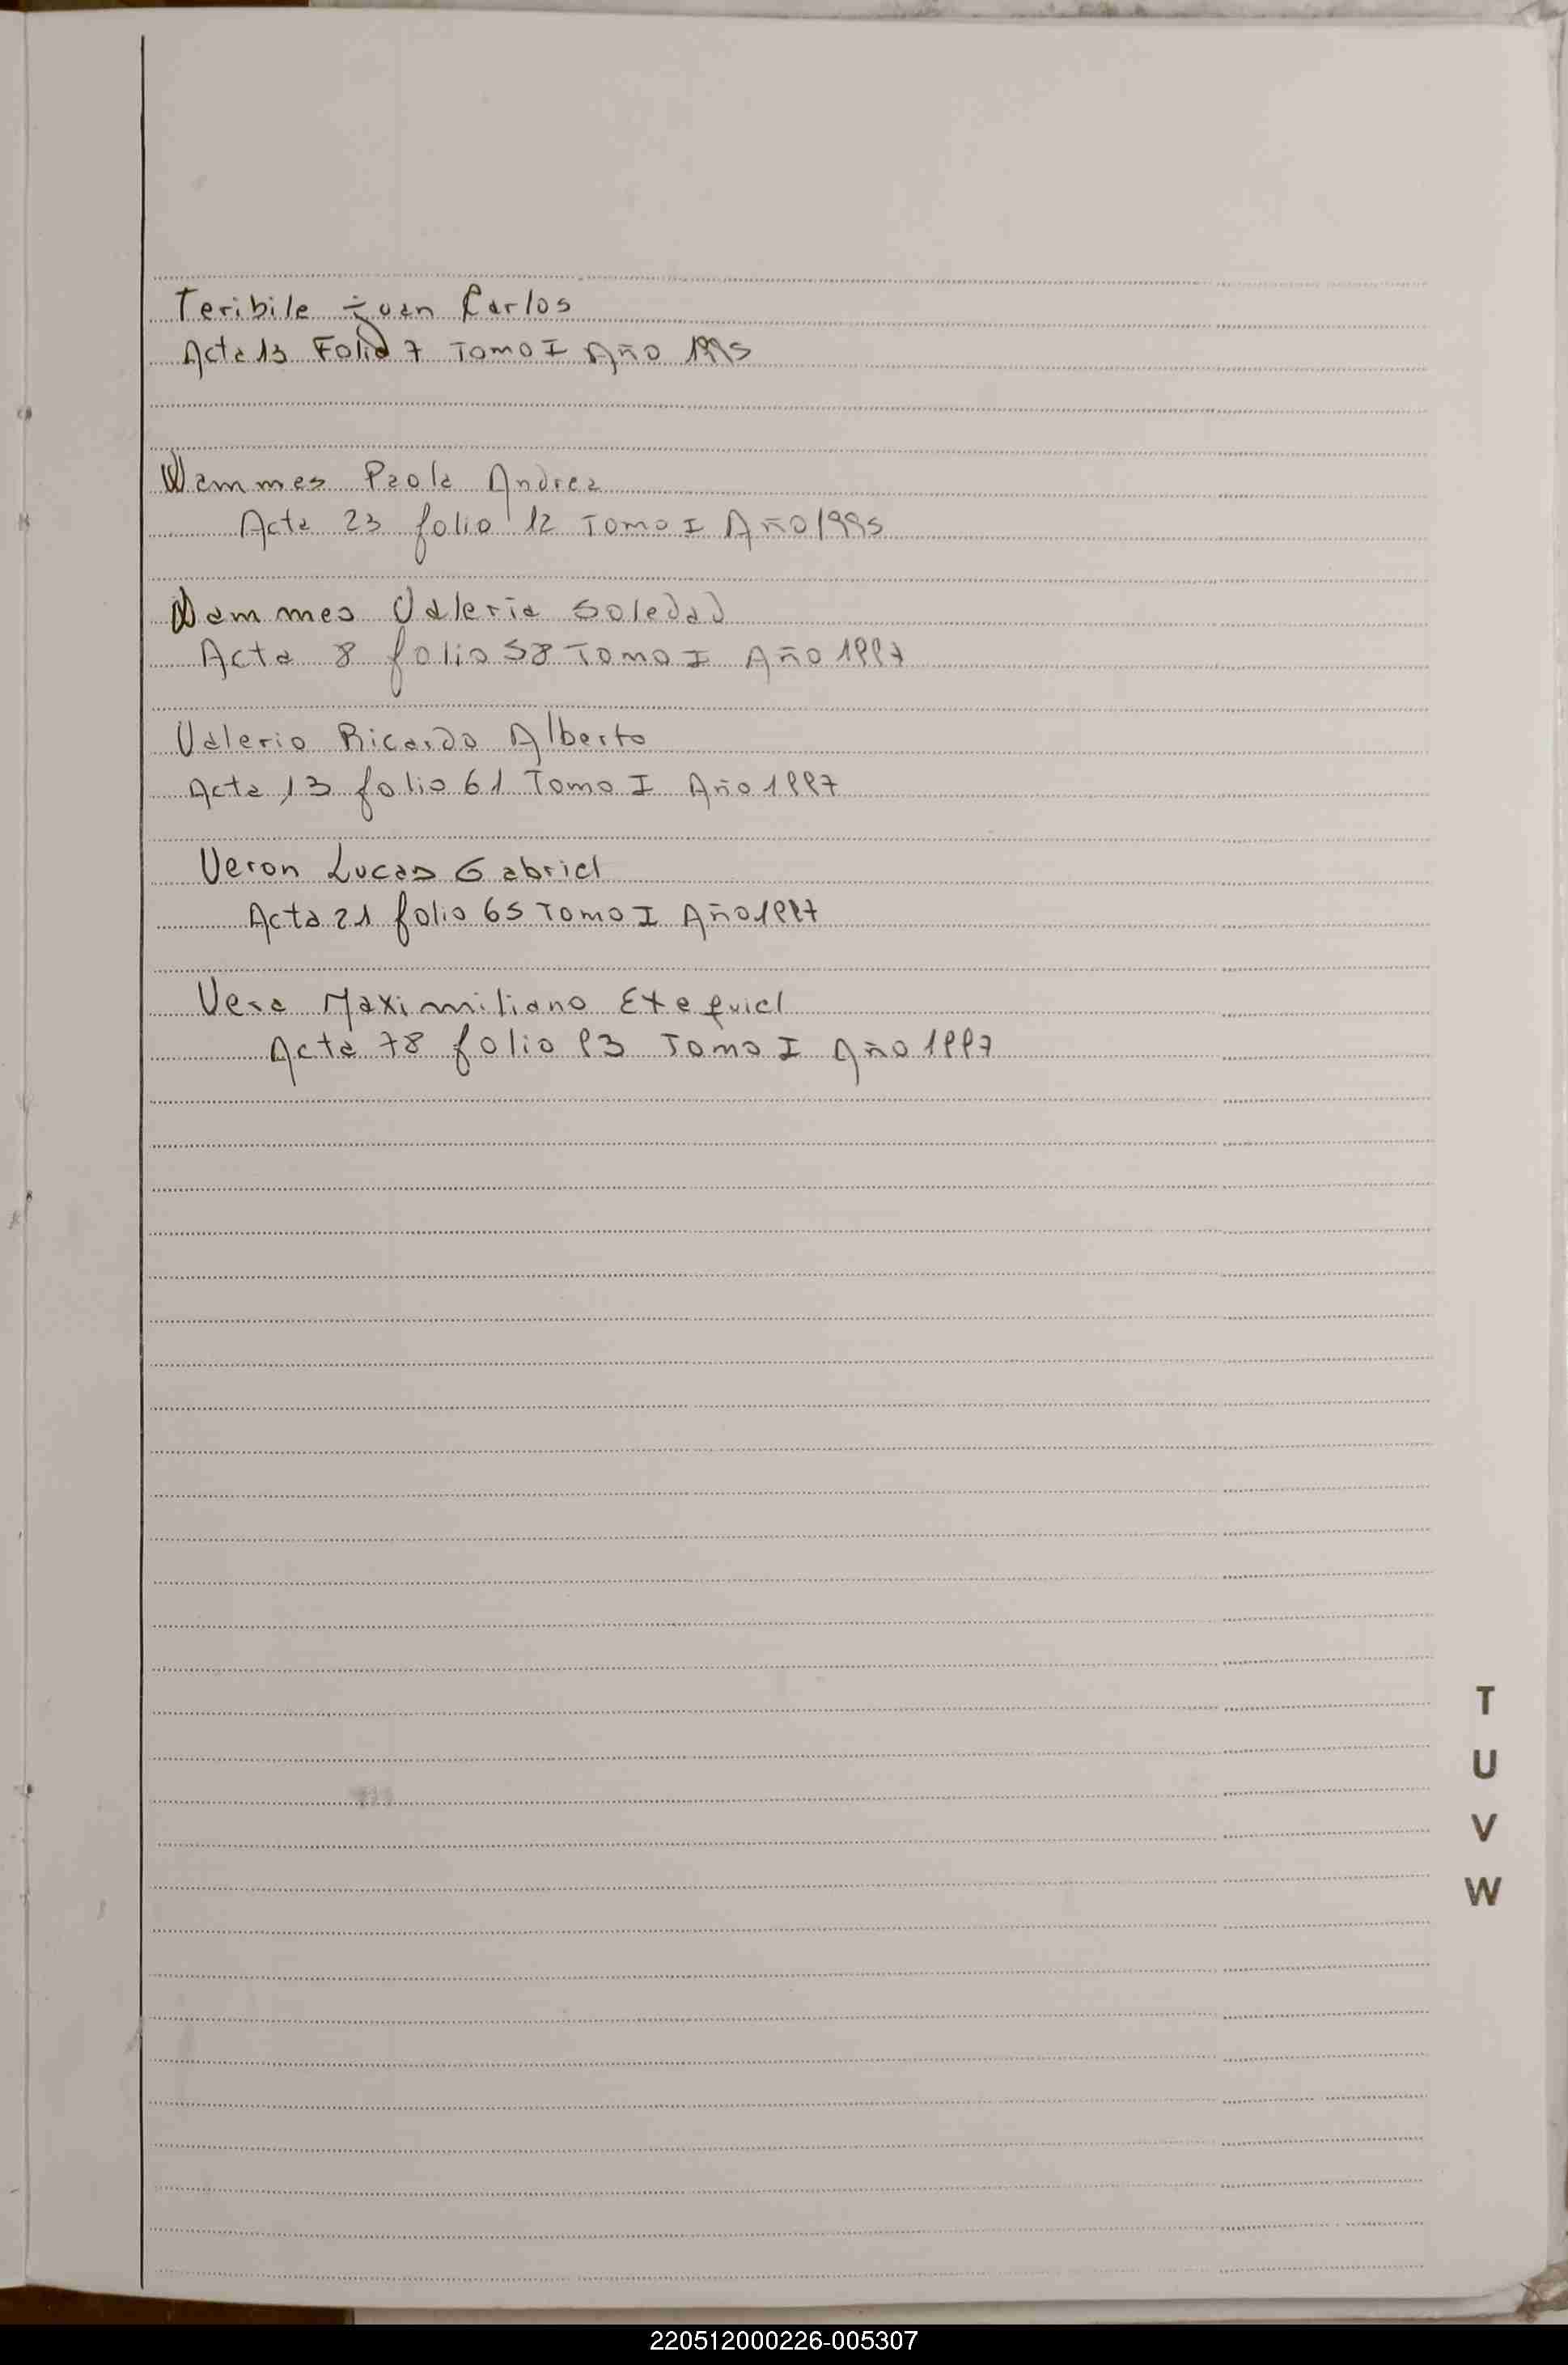 Teribile Juan Carlos
Acta 13 Folio 7 Tomo I Año 1995
Wammes Paola Andrea
Acta 23 folio 12 Tomo I Año 1995
Wammes Valeria Soledad
Acta 8 folio 58 Tomo I Año 1997
Valerio Ricardo Alberto
Acta 13 folio 61 Tomo I Año 1997
Veron Lucas Gabriel
Acta 21 folio 65 Tomo I Año 1997
Vera Maximiliano Exequiel
Acta 78 folio 93 Tomo I Año 1997
T
U
V
W
220512000226-005307